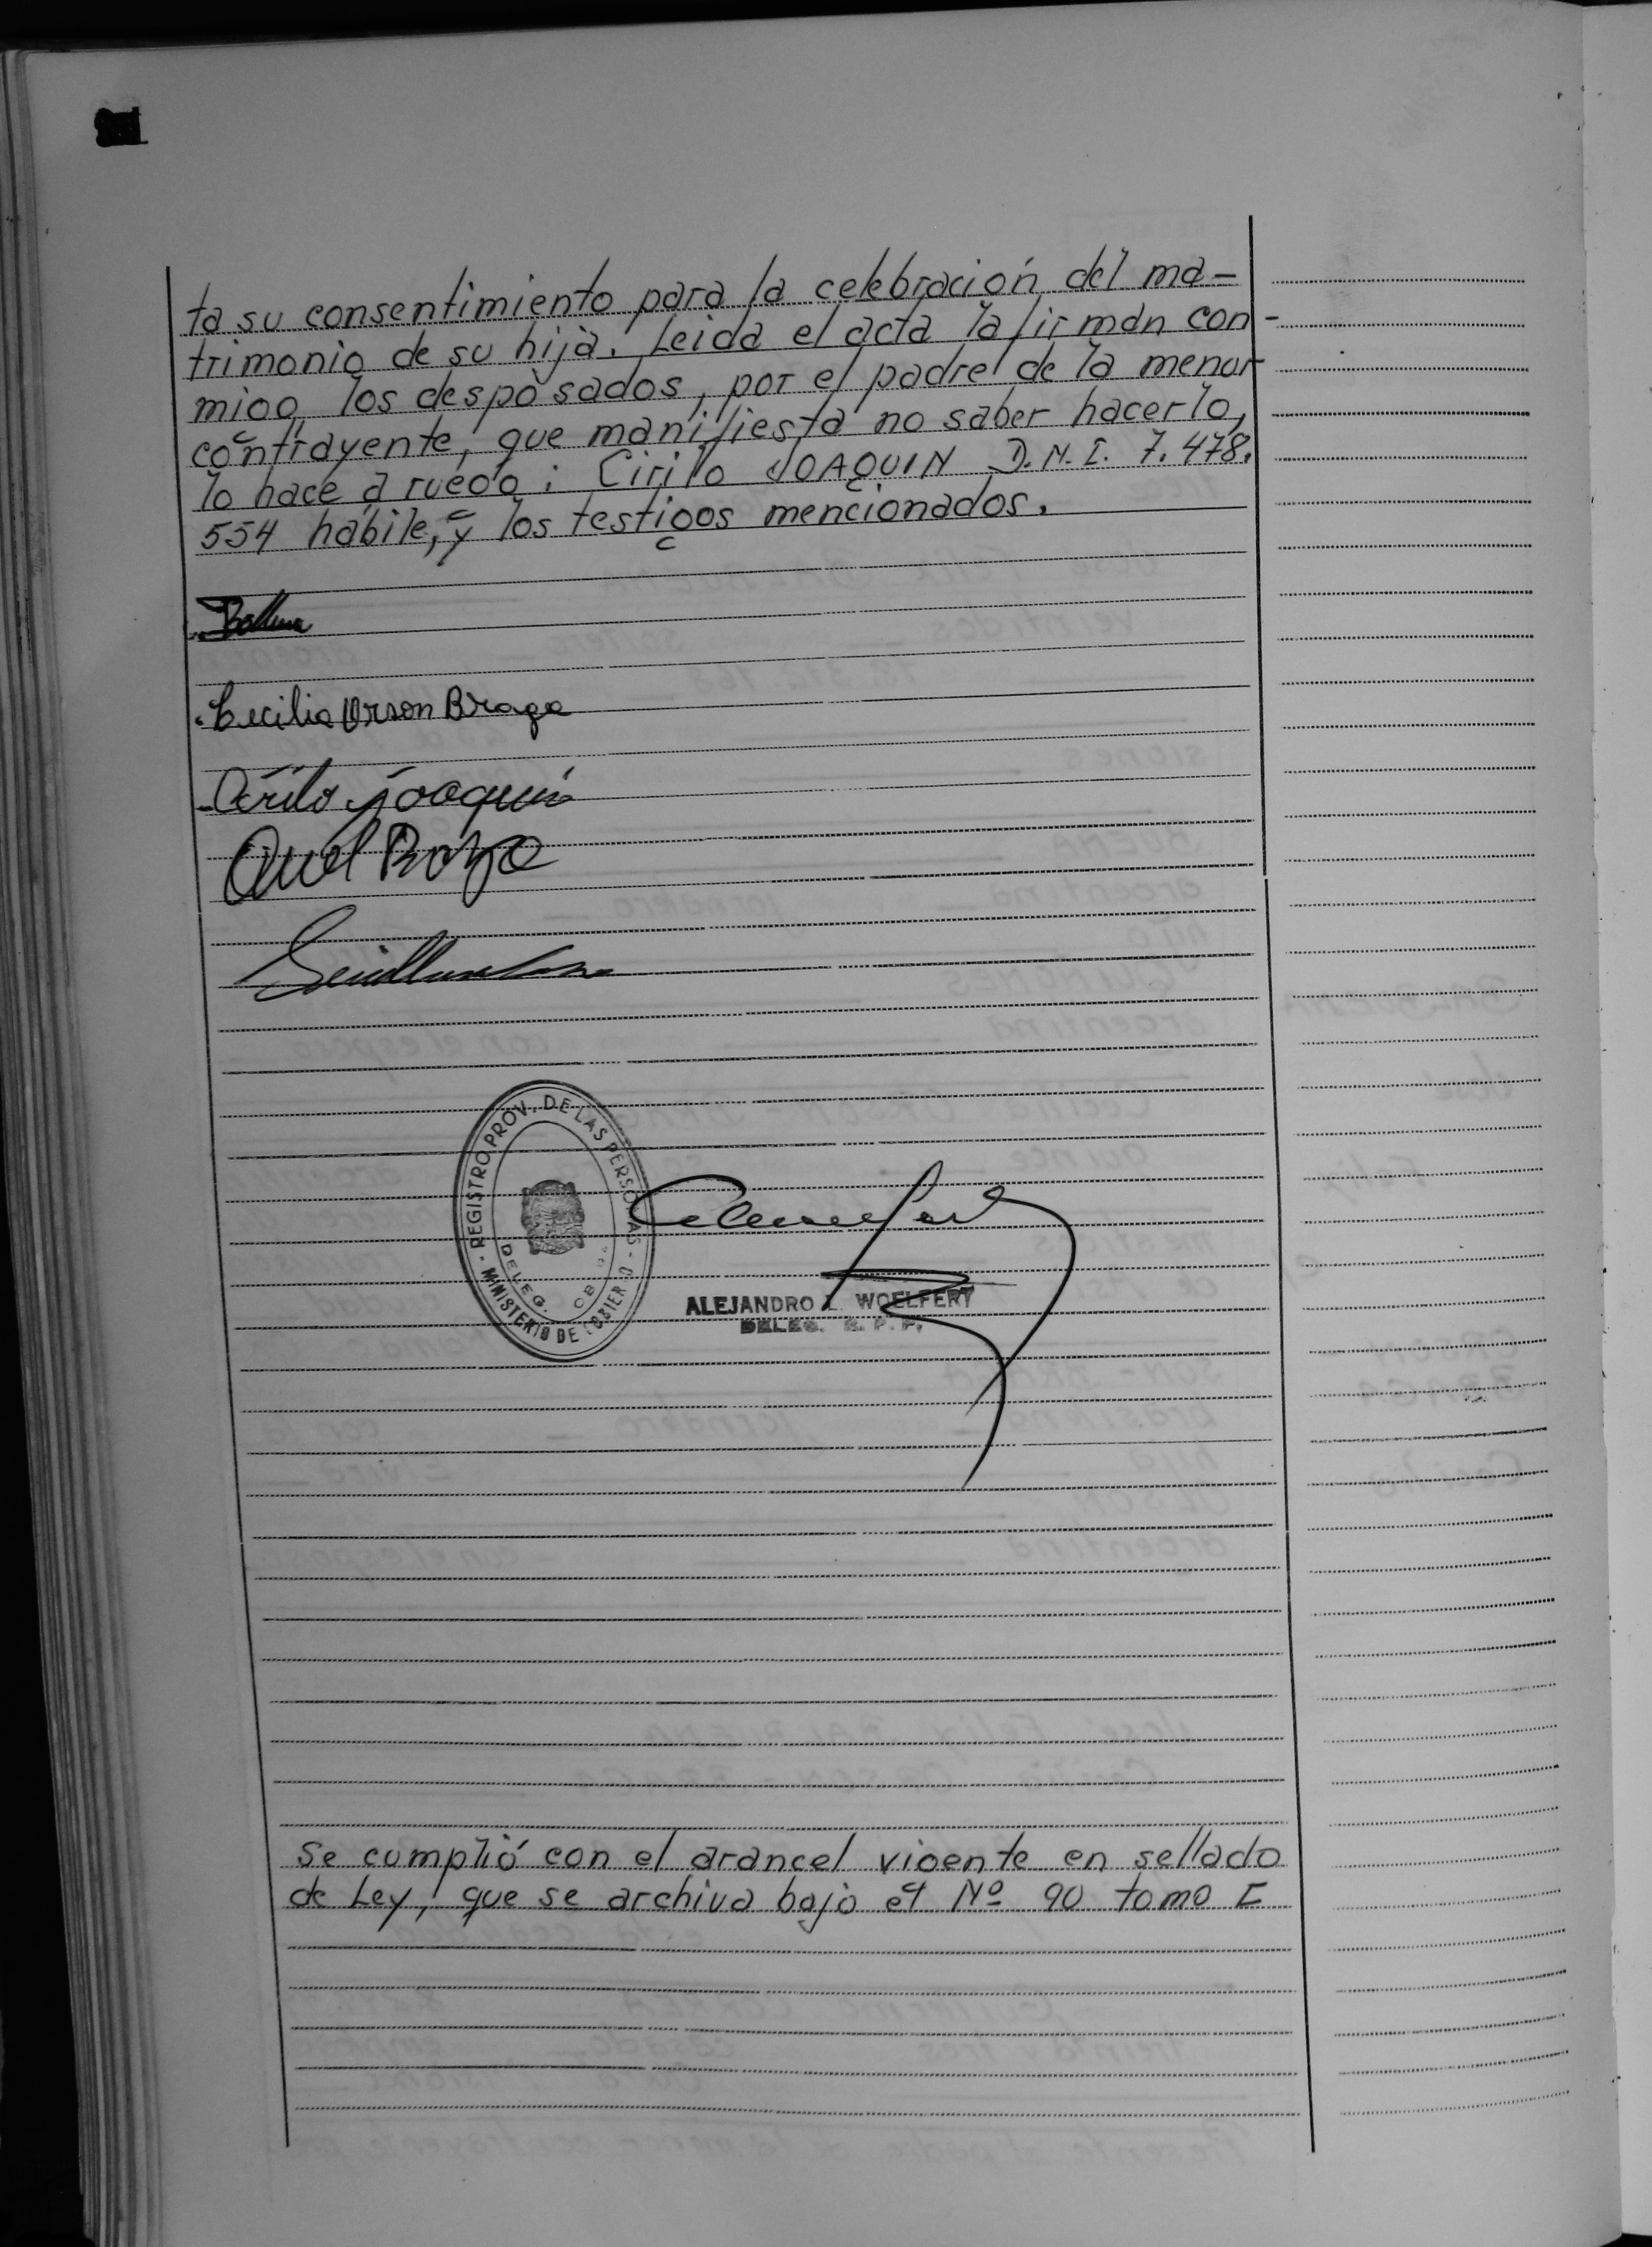 ta su consentimiento para la celebración del ma-
trimonio de su hija. Leida el acta la firman con-
migo, los desposados, por el padre de la menor
contrayente, que manifiesta no saber hacerlo,
lo hace a ruego: Cirilo JOAQUIN D.N.I. 7.478.
554 hábile, y los testigos mencionados.
Cecilia Orson Braga
Cirilo Joaquin
REGISTRO PROV. DE LAS PERSONAS - MINISTERIO DE GOBIERNO
DELEG.
ALEJANDRO L. WOELFERT
DELEG. R. P. P.
Se cumplió con el arancel vigente en sellado
de Ley, que se archiva bajo el Nº 90 tomo I